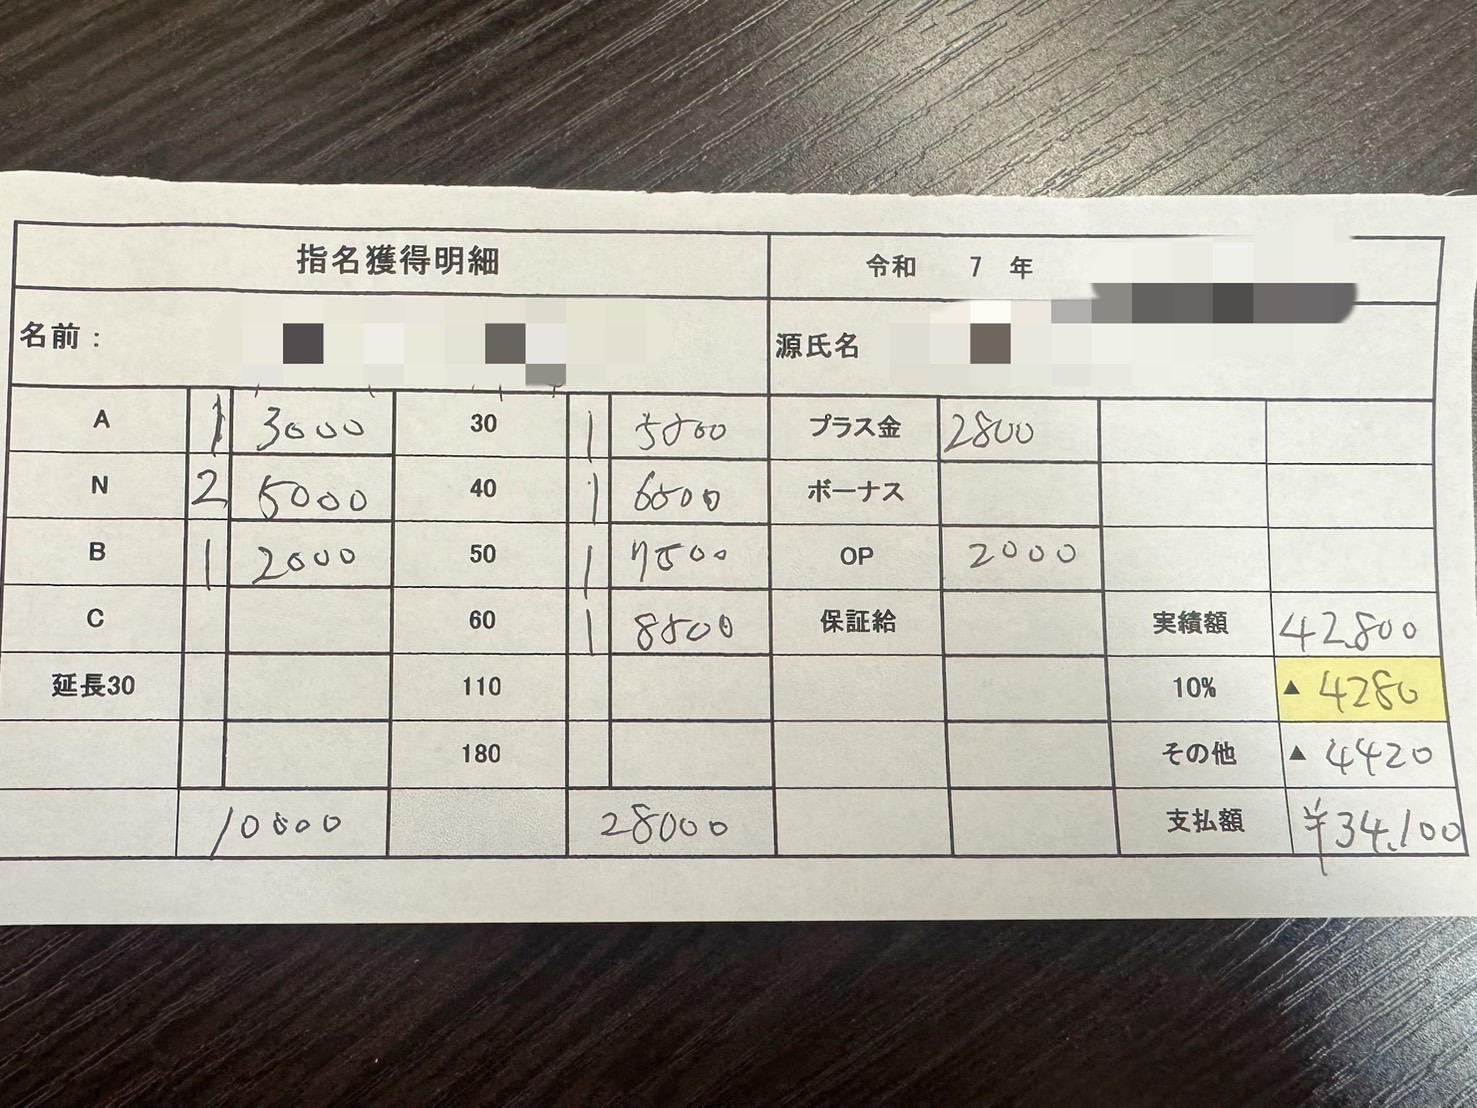 指名獲得明細 令和 7 年
名前： 源氏名
A 1 3000 30 1 5800 プラス金 2800
N 2 5000 40 1 6800 ボーナス
B 1 2000 50 1 7500 OP 2000
C 60 1 8500 保証給 実績額 42,800
延長30 110 10% ▲ 4280
180 その他 ▲ 4420
10000 28000 支払額 ¥34,100